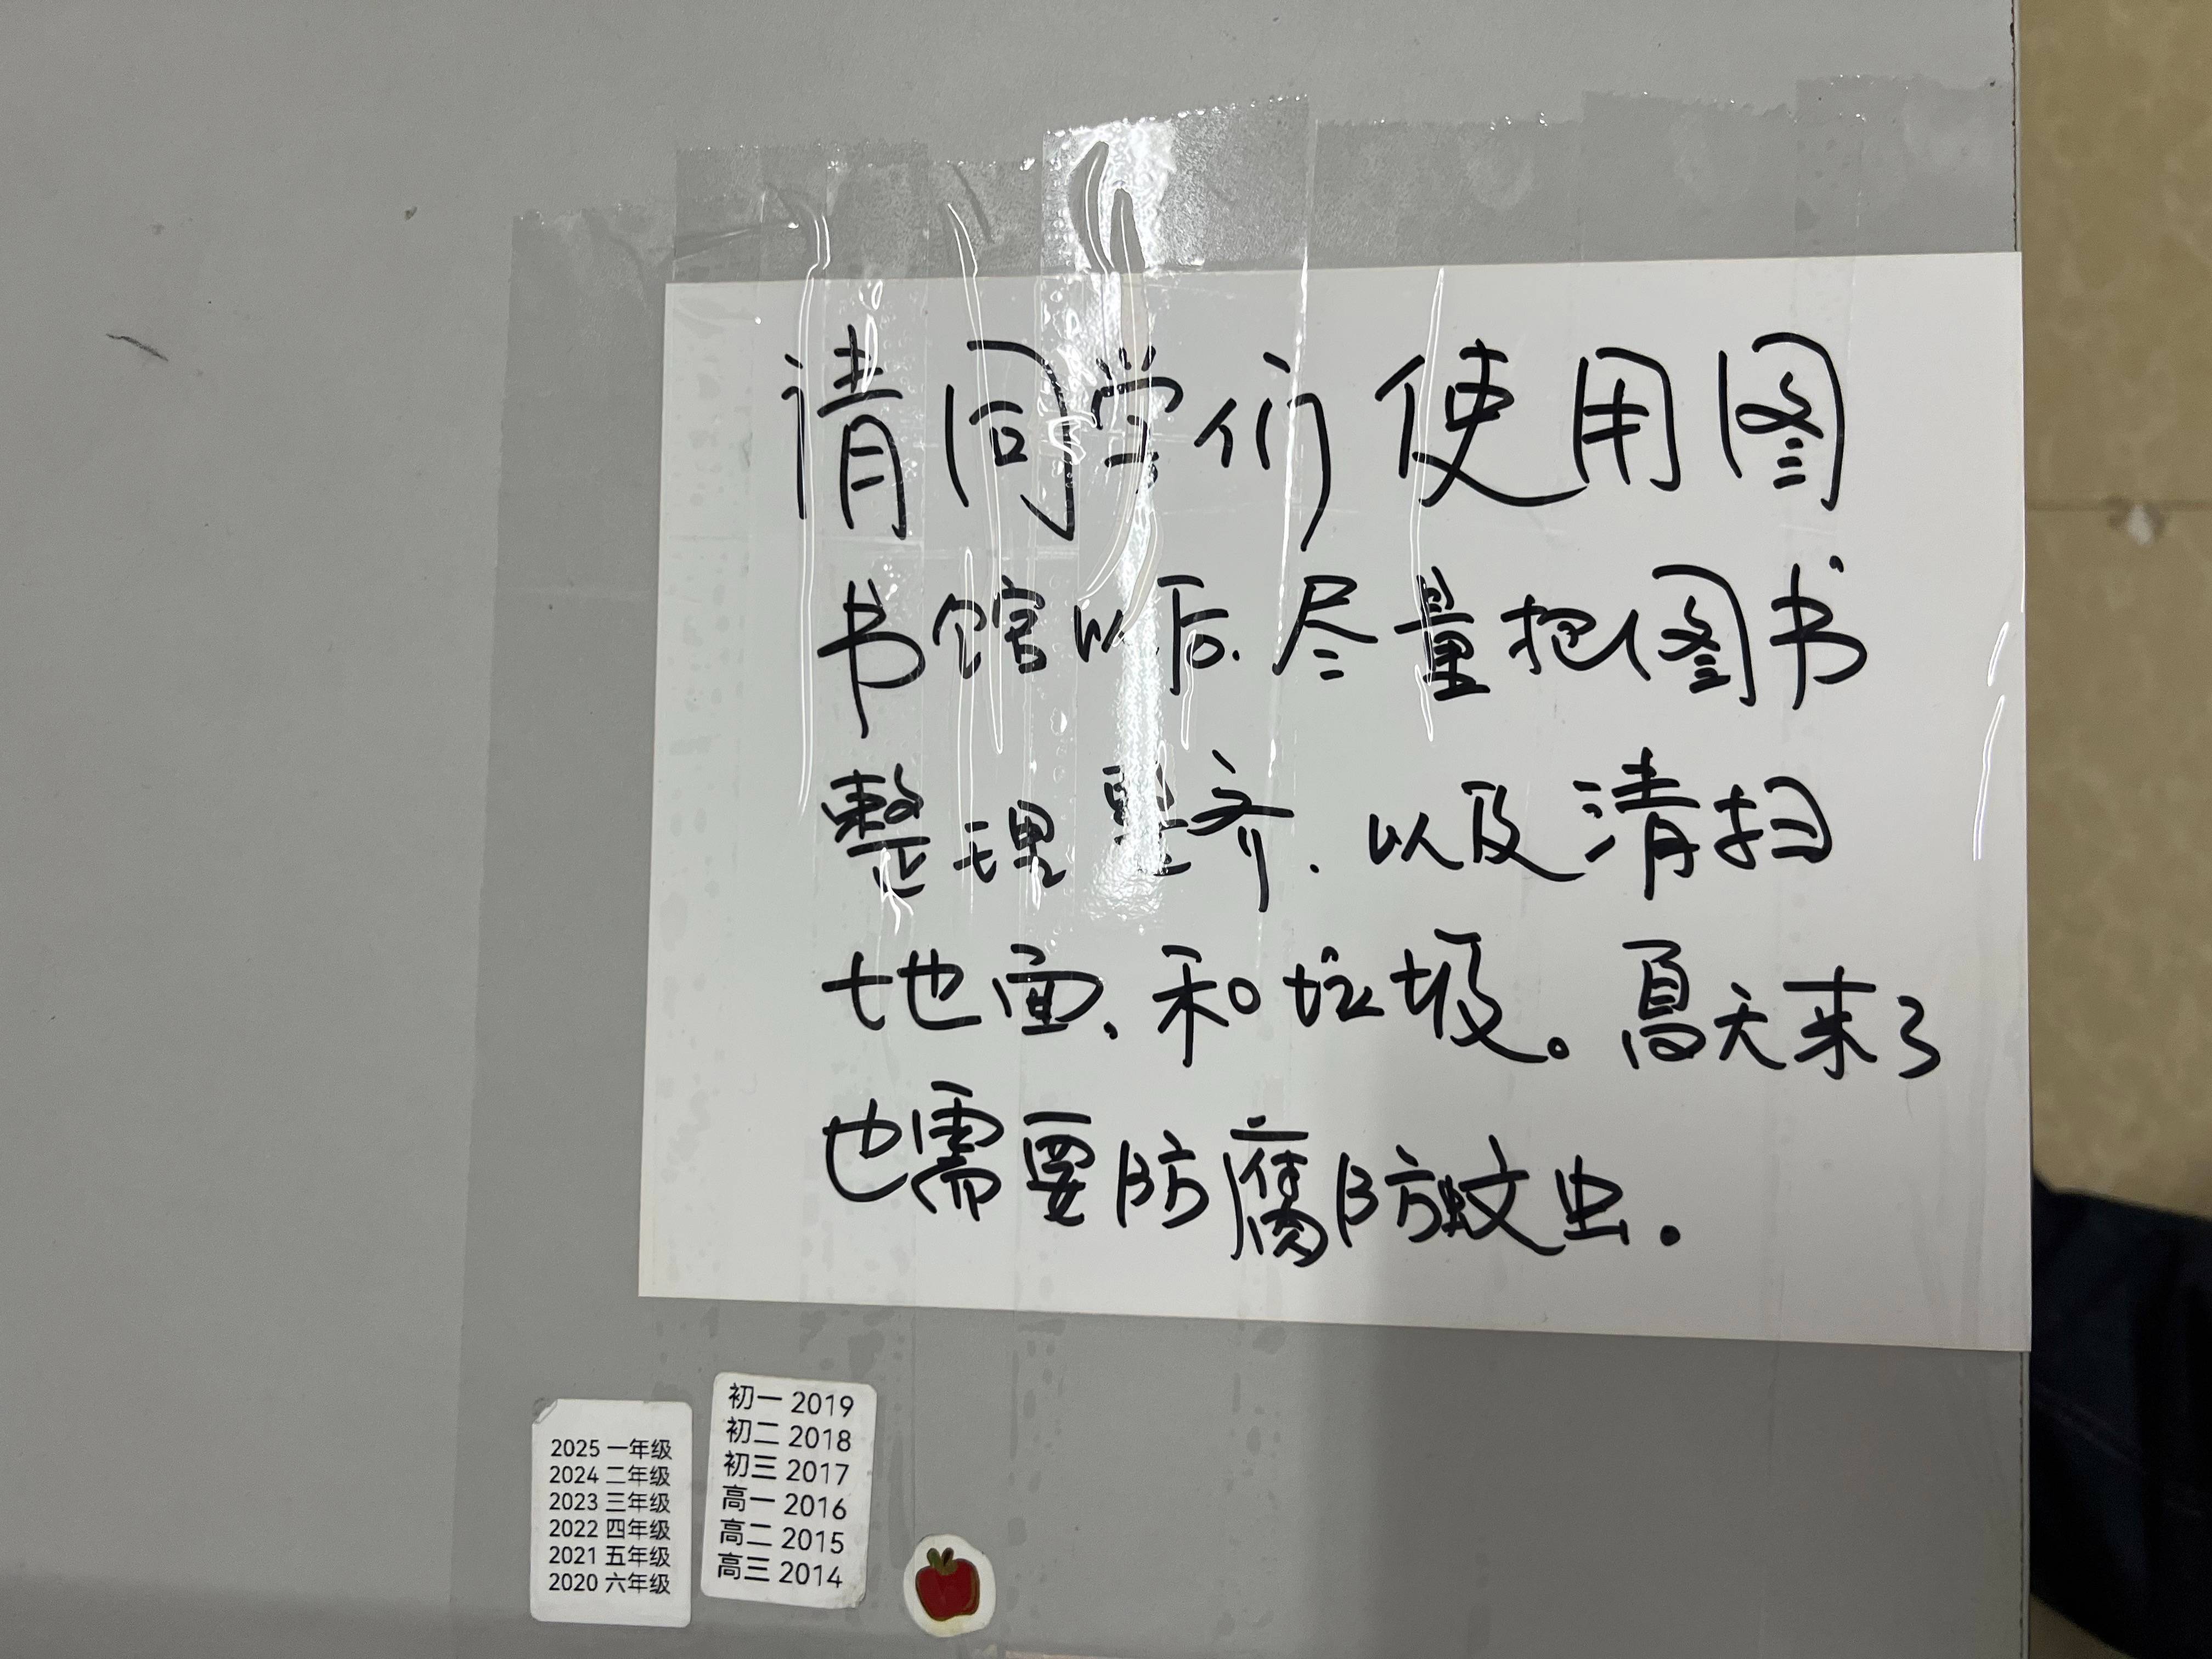 请同学们使用图
书馆以后、尽量把图书
整理整齐、以及清扫
地面、和垃圾。夏天来了
也需要防腐防蚊虫。
2025 一年级
2024 二年级
2023 三年级
2022 四年级
2021 五年级
2020 六年级
初一 2019
初二 2018
初三 2017
高一 2016
高二 2015
高三 2014